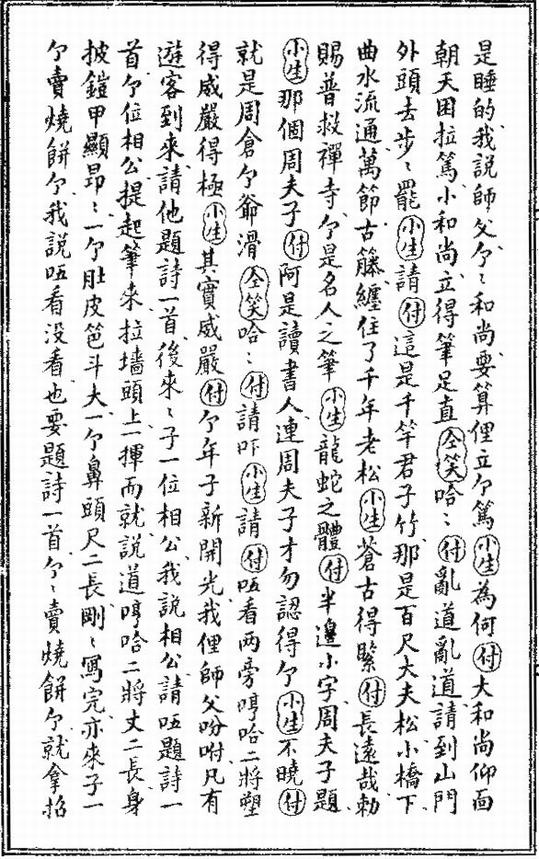 是睡的我說師父𠂊〻和尚要算俚立𠂊篤小生為何付大和尚仰面
朝天困拉篤小和尚立得筆足直仝笑哈〻付亂道亂道請到山門
外頭去步〻罷小生請付這是千竿君子竹那是百尺大夫松小橋下
曲水流通萬節古籐纏住了千年老松小生蒼古得緊付長遠哉勅
賜普救禪寺𠂊是名人之筆小生龍蛇之體付半邊小字周夫子題
小生那個周夫子付阿是讀書人連周夫子才勿認得𠂊小生不曉付
就是周倉𠂊爺滑仝笑哈〻付請吓小生請付唔看两旁哼哈二將塑
得威嚴得極小生其實威嚴付𠂊年子新開光我俚師父吩咐凡有
遊客到來請他題詩一首後來〻子一位相公我說相公請唔題詩一
首𠂊位相公提起筆來拉墻頭上一揮而就說道哼哈二將丈二長身
披鎧甲顯昂〻一𠂊肚皮笆斗大一𠂊鼻頭尺二長剛〻寫完亦來子一
𠂊賣燒餅𠂊我說唔看没看也要題詩一首𠂊〻賣燒餅𠂊就拿招